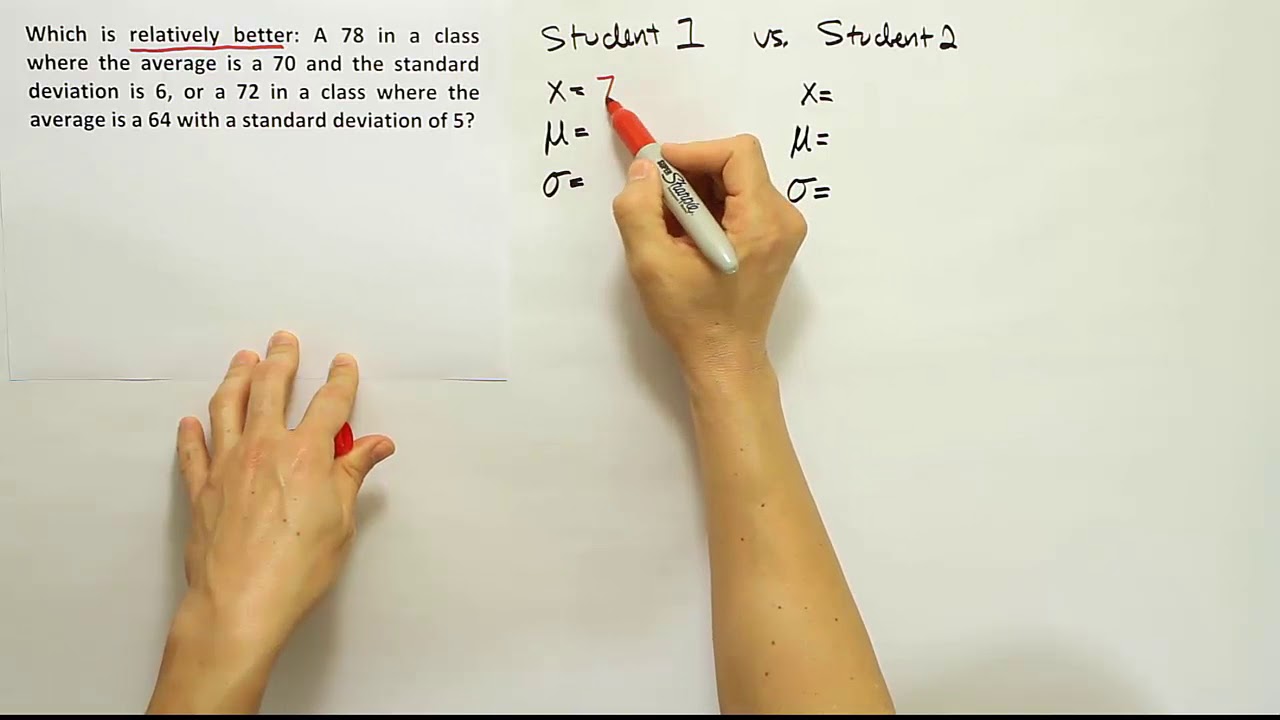 Which is relatively better: A 78 in a class
where the average is a 70 and the standard
deviation is 6, or a 72 in a class where the
average is a 64 with a standard deviation of 5?
Student 1 vs. Student 2
x= 7 x=
μ= μ=
σ= σ=
SUPER Sharpie